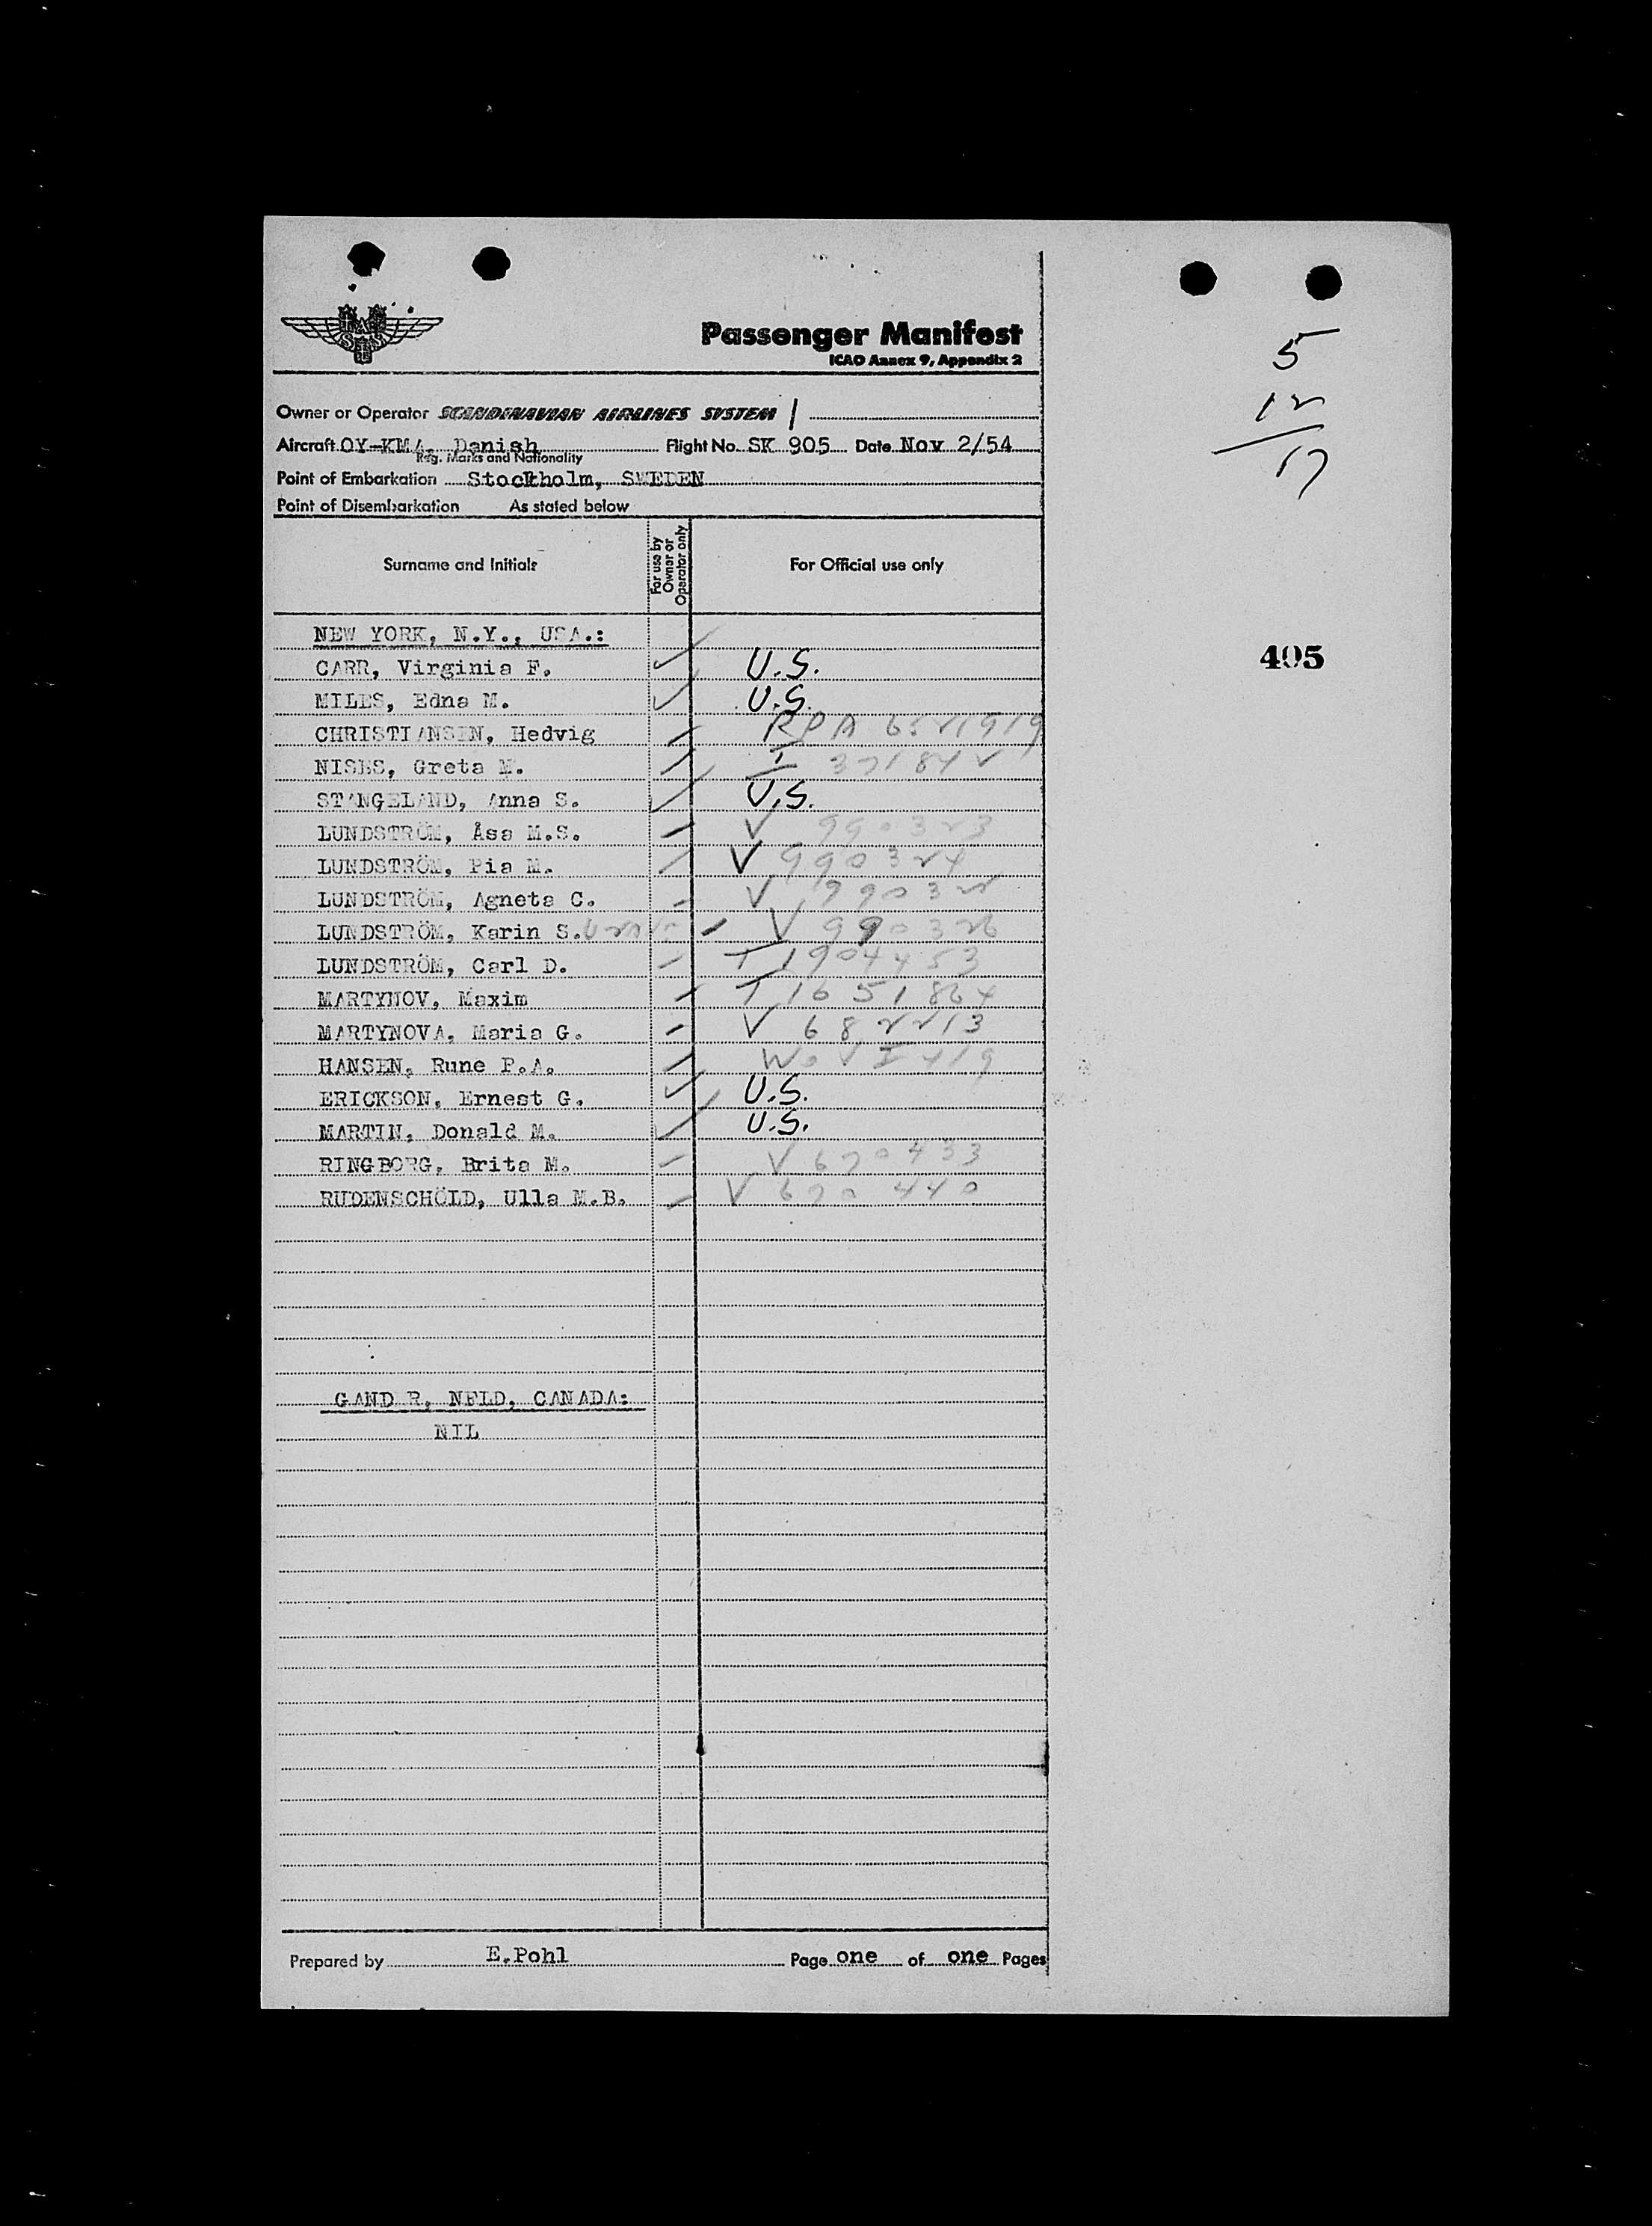 Passenger Manifest
ICAO Annex 9, Appendix 2
Owner or Operator SCANDINAVIAN AIRLINES SYSTEM
Aircraft OY-KMA, Danish Flight No. SK 905 Date Nov 2/54
Reg. Marks and Nationality
Point of Embarkation Stockholm, SWEDEN
Point of Disembarkation As stated below
5
12
17
Surname and Initials For use by Owner or Operator only For Official use only
NEW YORK, N.Y., USA.:
405
CARR, Virginia F. U.S.
MILES, Edna M. U.S.
CHRISTIANSEN, Hedvig RPA
NISES, Greta M. I
STANGELAND, Anna S. U.S.
LUNDSTRÖM, Åsa M.S. V 990323
LUNDSTRÖM, Pia M. V 990324
LUNDSTRÖM, Agneta C. V
LUNDSTRÖM, Karin S. V 990326
LUNDSTRÖM, Carl D. T 1904453
MARTYNOV, Maxim T 1651864
MARTYNOVA, Maria G. V 682213
HANSEN, Rune P.A.
ERICKSON, Ernest G. U.S.
MARTIN, Donald M. U.S.
RINGBORG, Brita M. V 670433
RUDENSCHÖLD, Ulla M.B. V 670440
GAND R, NFLD, CANADA:
NIL
Prepared by E.Pohl Page one of one Pages